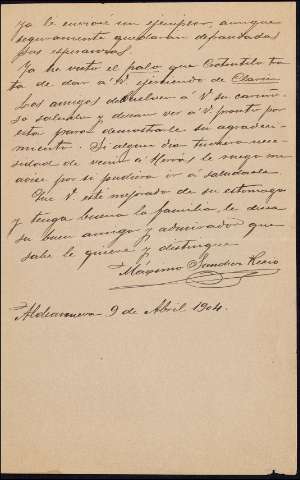 ya le enviaré un ejemplar, aunque
seguramente quedarán defraudadas
sus esperanzas.
Ya he visto el palo que
ta de dar á V. de Clarín
Los amigos devuelven á V. su cariño-
so saludo y desean ver á V. pronto por
esta para demostarle su agradeci-
miento. Si algun día tuviera nece-
sidad de venir á Hervás le ruego me
avise por si pudiera ir á saludarle.
Que V. esté mejorado de su estomago
y tenga buena la familia, le desea
su buen amigo y admirador que
sabe le quiere y distingue
Máximo Sánchez Recio
Aldeanueva 9 de Abril 1904.